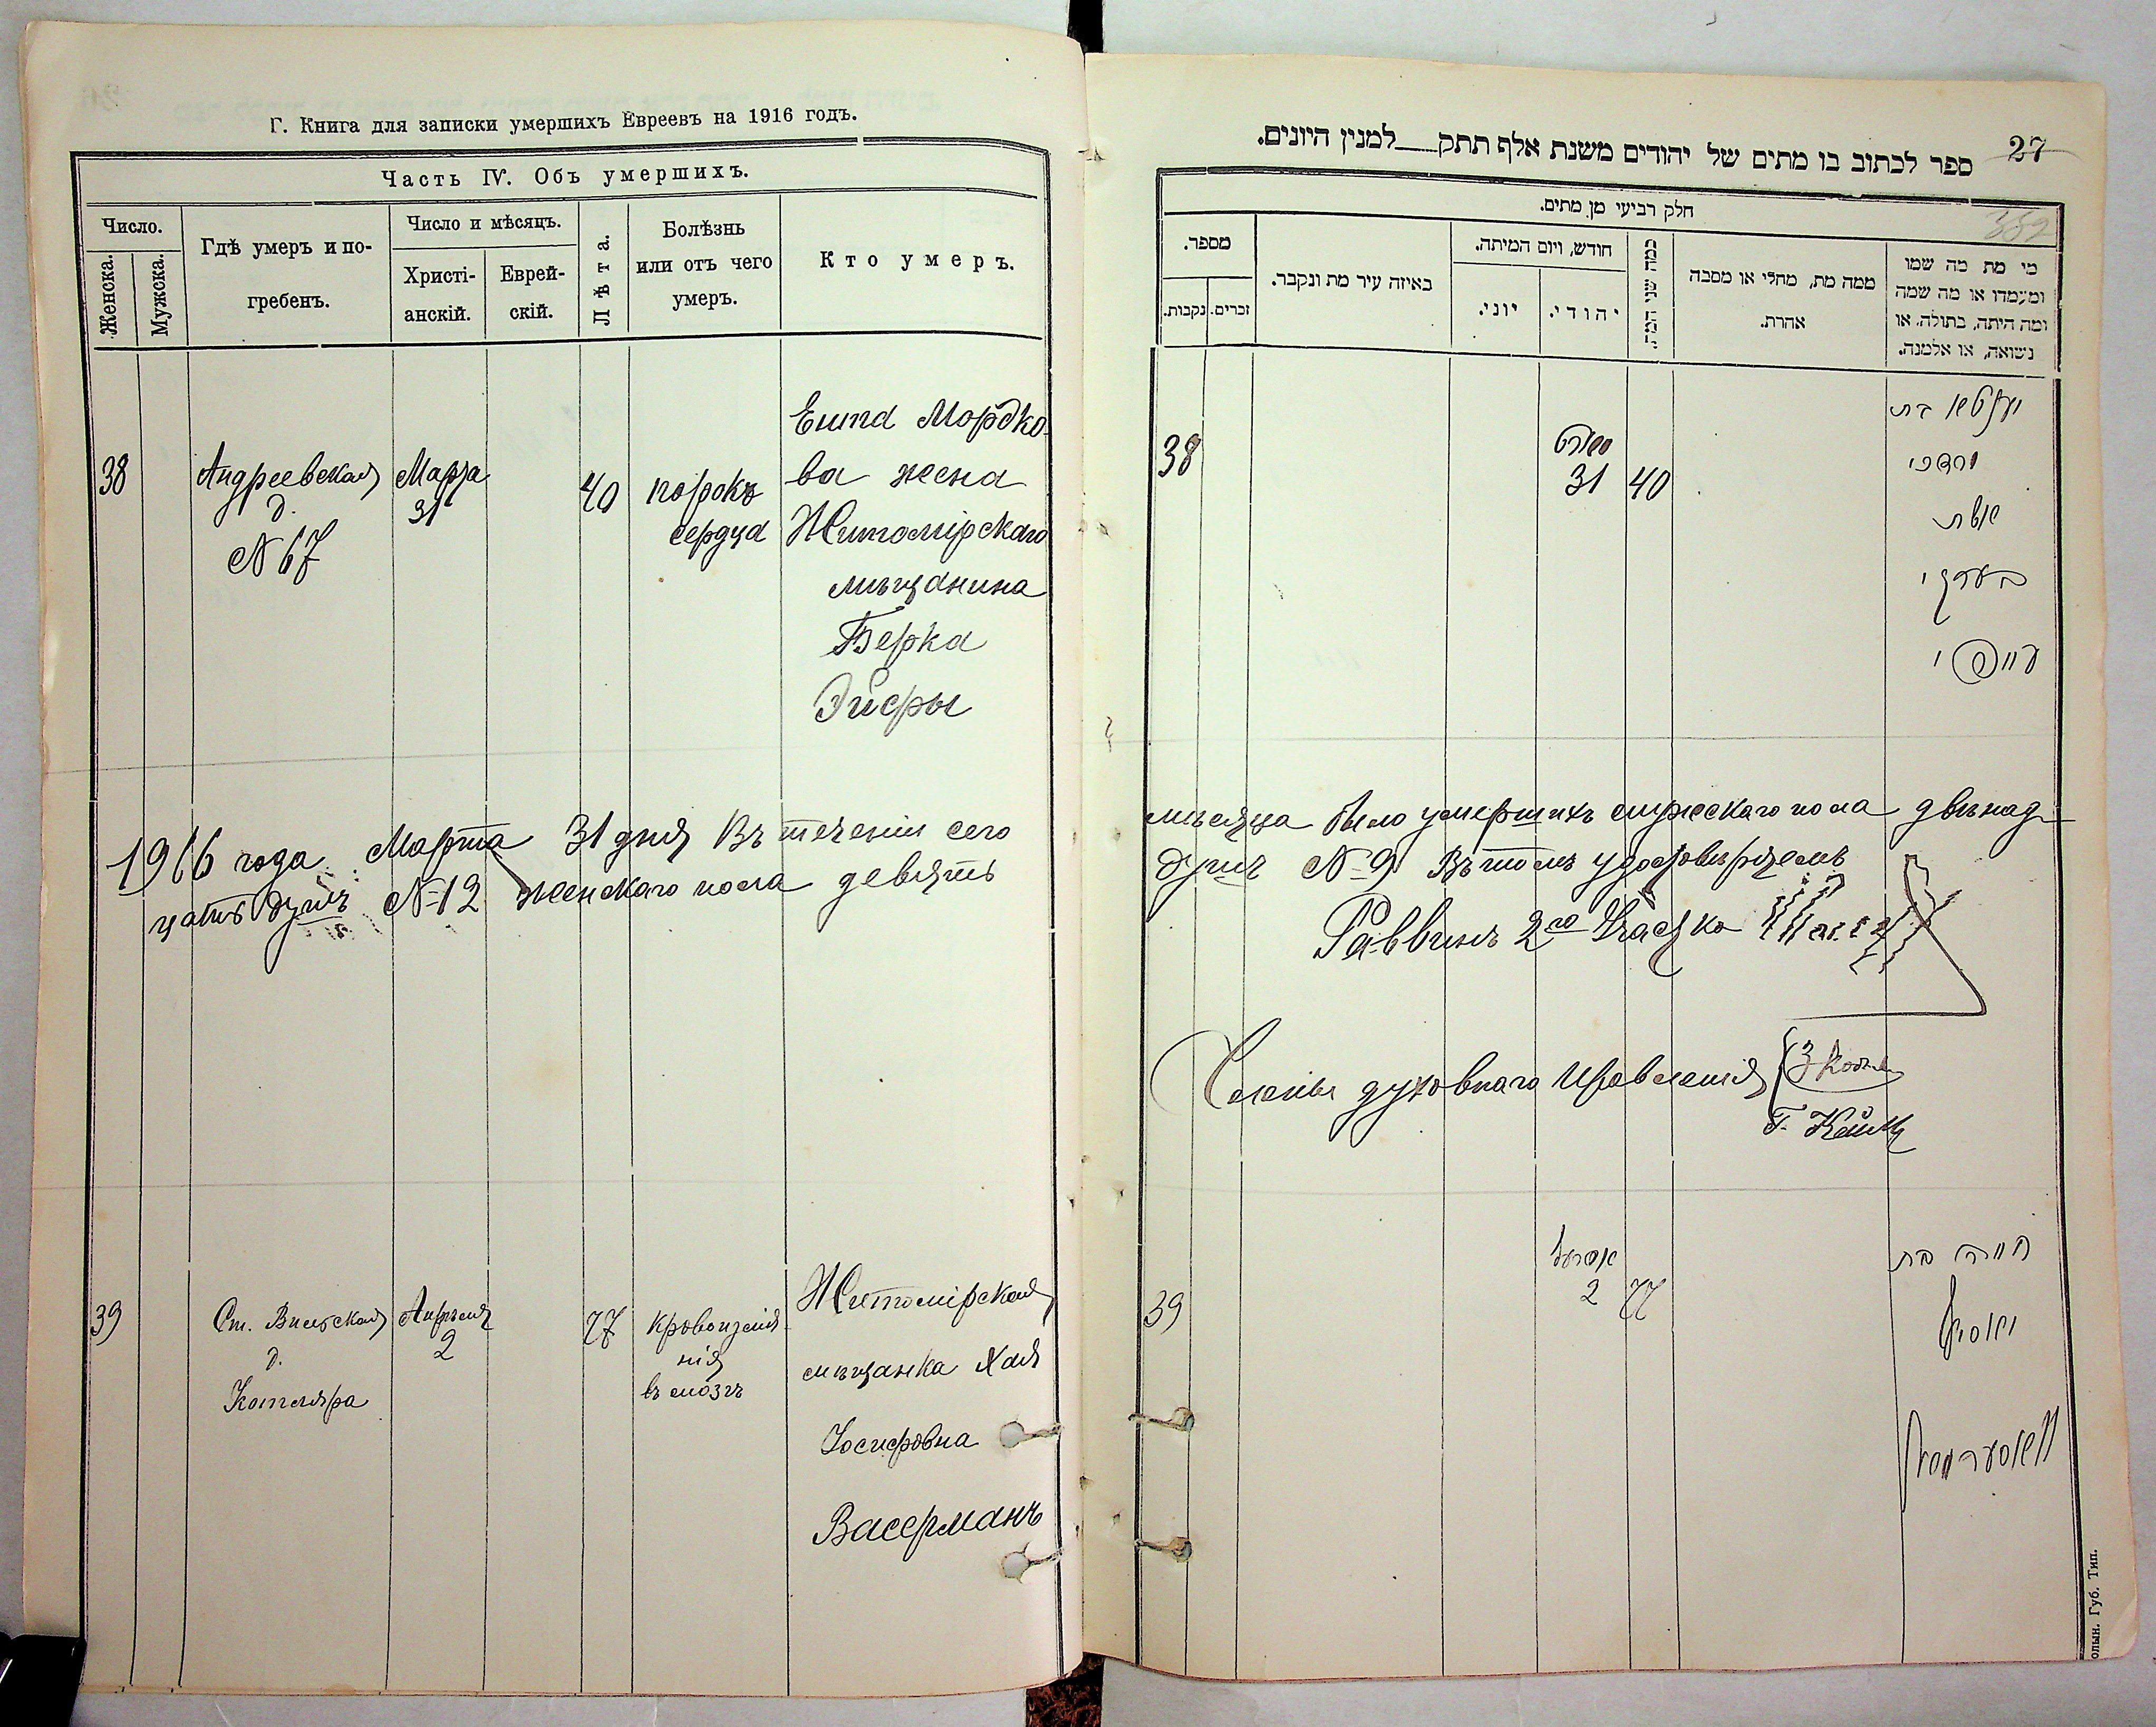 Г. Книга для записки умершихъ Евреевъ на 1916 годъ.
Часть IV. Объ умершихъ.
Число.
Женска.
Мужска.
Гдѣ умеръ и по-
гребенъ.
Число и мѣсяцъ.
Христі-
анскій.
Еврей-
скій.
Лѣта.
Болѣзнь
или отъ чего
умеръ.
Кто умеръ.
38
Андреевская
д.
№ 67
Марта
31
40
порокъ
сердца
Ента Мордко-
ва жена
Житомірскаго
мѣщанина
Берка
1916 года Марта 31 дня Въ теченіи сего
цать душъ № 12 женскаго пола девять
39
Ст. Вильская
д.
Котляра
Апрѣля
2
77
кровоизлія
нія
въ мозгъ
Житомірская
мѣщанка Хая
Іосифовна
Васерманъ
27
ספר לכתוב בו מתים של יהודים משנת אלף תתק___למנין היונים.
359
חלק רביעי מן מתים.
מספר.
נקבות.
זכרים.
באיזה עיר מת ונקבר.
חודש, ויום המיתה.
יוני.
יהודי.
כמה שני המת.
ממה מת, מחלי או מסבה
אהרת.
מי מת מה שמו
ומעמדו או מה שמה
ומה היתה, בתולה, או
נשואה, או אלמנה.
38
מארט
31
40
יענטא בת
מרדכי
אשת
בערקי
мѣсяца было умершихъ мужескаго пола двѣнад-
душъ № 9 Въ томъ удостовѣряемъ
Раввинъ 2го Участка
Члены духовнаго Правленія
39
אפריל
2
77
חיה בת
יאסיף
וואסערמאן
олын. Губ. Тип.